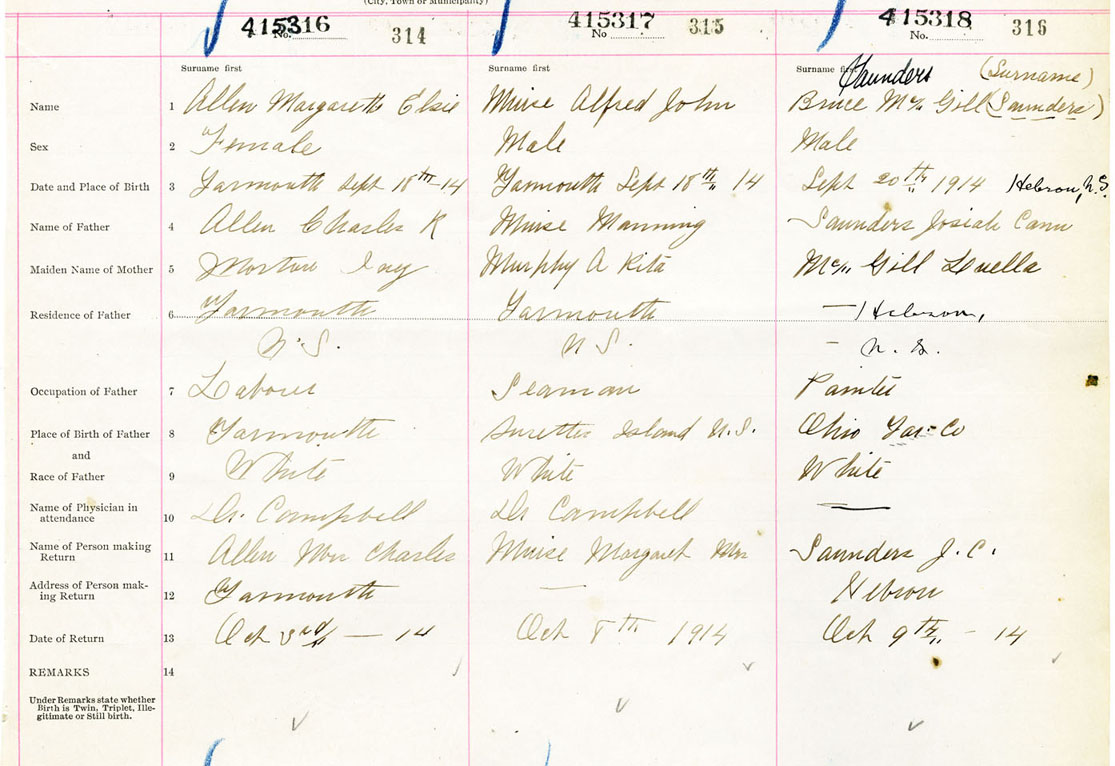 (City, Town or Municipality)
415316 No. 314 415317 No 315 415318 No. 316
Surname first Surname first Surname first Saunders (Surname)
Name 1 Allen Margareth Elsie Muise Alfred John Bruce Mc Gill (Saunders)
Sex 2 Female Male Male
Date and Place of Birth 3 Yarmouth Sept 18th-14 Yarmouth Sept 18th 14 Sept 20th 1914 Hebron, N.S.
Name of Father 4 Allen Charles K Muise Manning Saunders Josiah Cann
Maiden Name of Mother 5 Murphy A Rita Mc Gill Luella
Residence of Father 6 Yarmouth Yarmouth — Hebron,
N. S. N S. - N. S.
Occupation of Father 7 Labourer Seaman Painter
Place of Birth of Father 8 Yarmouth Surettes Island N.S. Ohio Yar- Co
and
Race of Father 9 White White White
Name of Physician in
attendance 10 Dr. Campbell Dr Campbell —
Name of Person making
Return 11 Allen Mrs Charles Muise Margaret Mrs Saunders J. C.
Address of Person mak-
ing Return 12 Yarmouth — Hebron
Date of Return 13 Oct 3rd — 14 Oct 8th 1914 Oct 9th - 14
REMARKS 14
Under Remarks state whether
Birth is Twin, Triplet, Ille-
gitimate or Still birth.